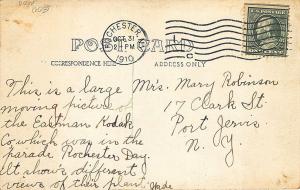 ROCHESTER, N.Y.
OCT 31
2 PM
1910
POST CARD
CORRESPONDENCE HERE
ADDRESS ONLY
This is a large
moving picture of
the Eastman Kodak
Co which was in the
parade Rochester Day.
It show's different
views of their plant. Made
Mrs. Mary Robinson
17 Clark St.
Port Jervis.
N. Y.